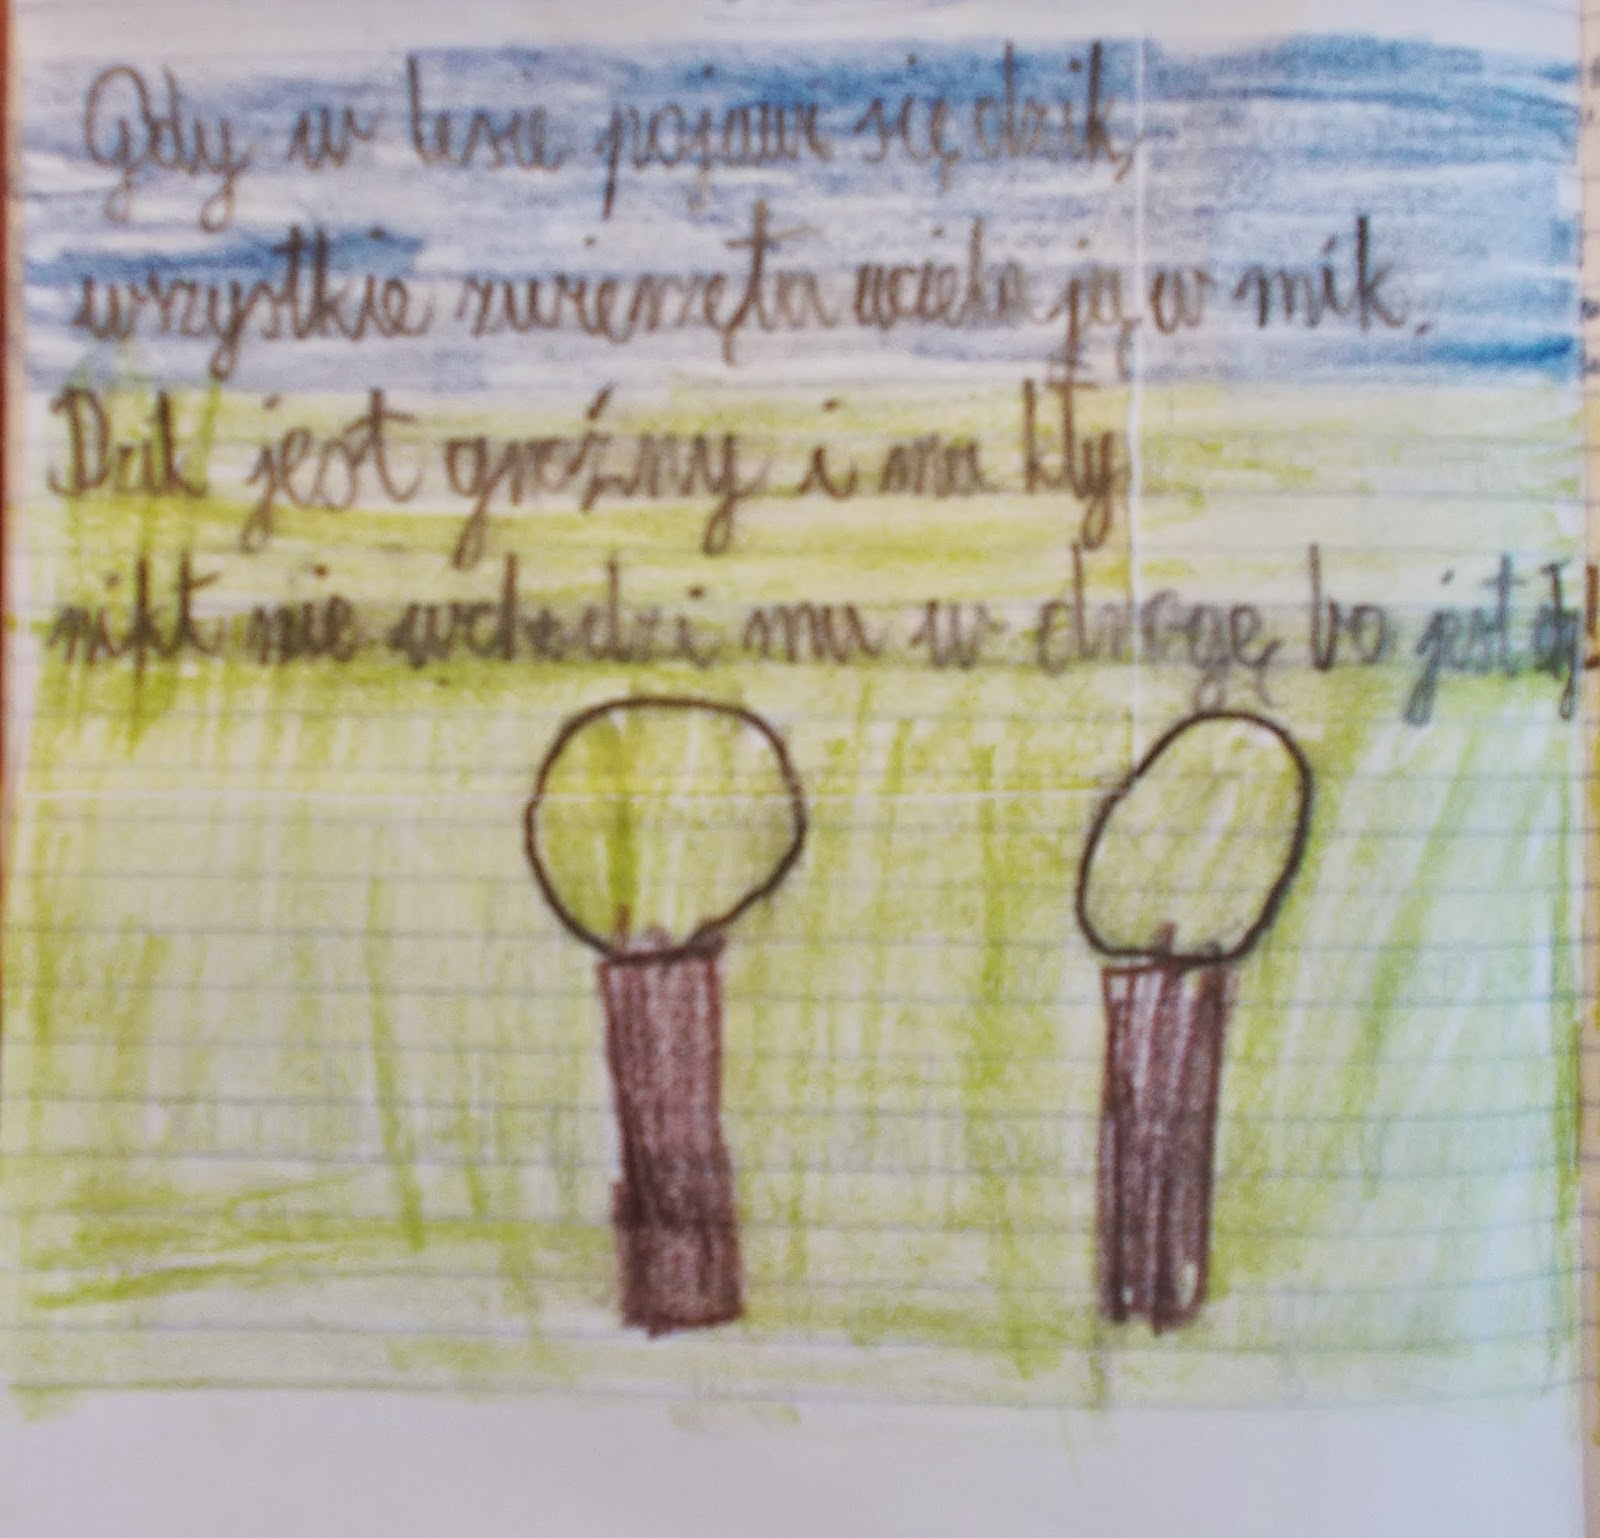 Gdy w lesie pojawi się dzik,
wszystkie zwierzęta uciekają w mik.
Dzik jest groźny i ma kły
nikt nie wchodzi mu w drogę bo jest zły!